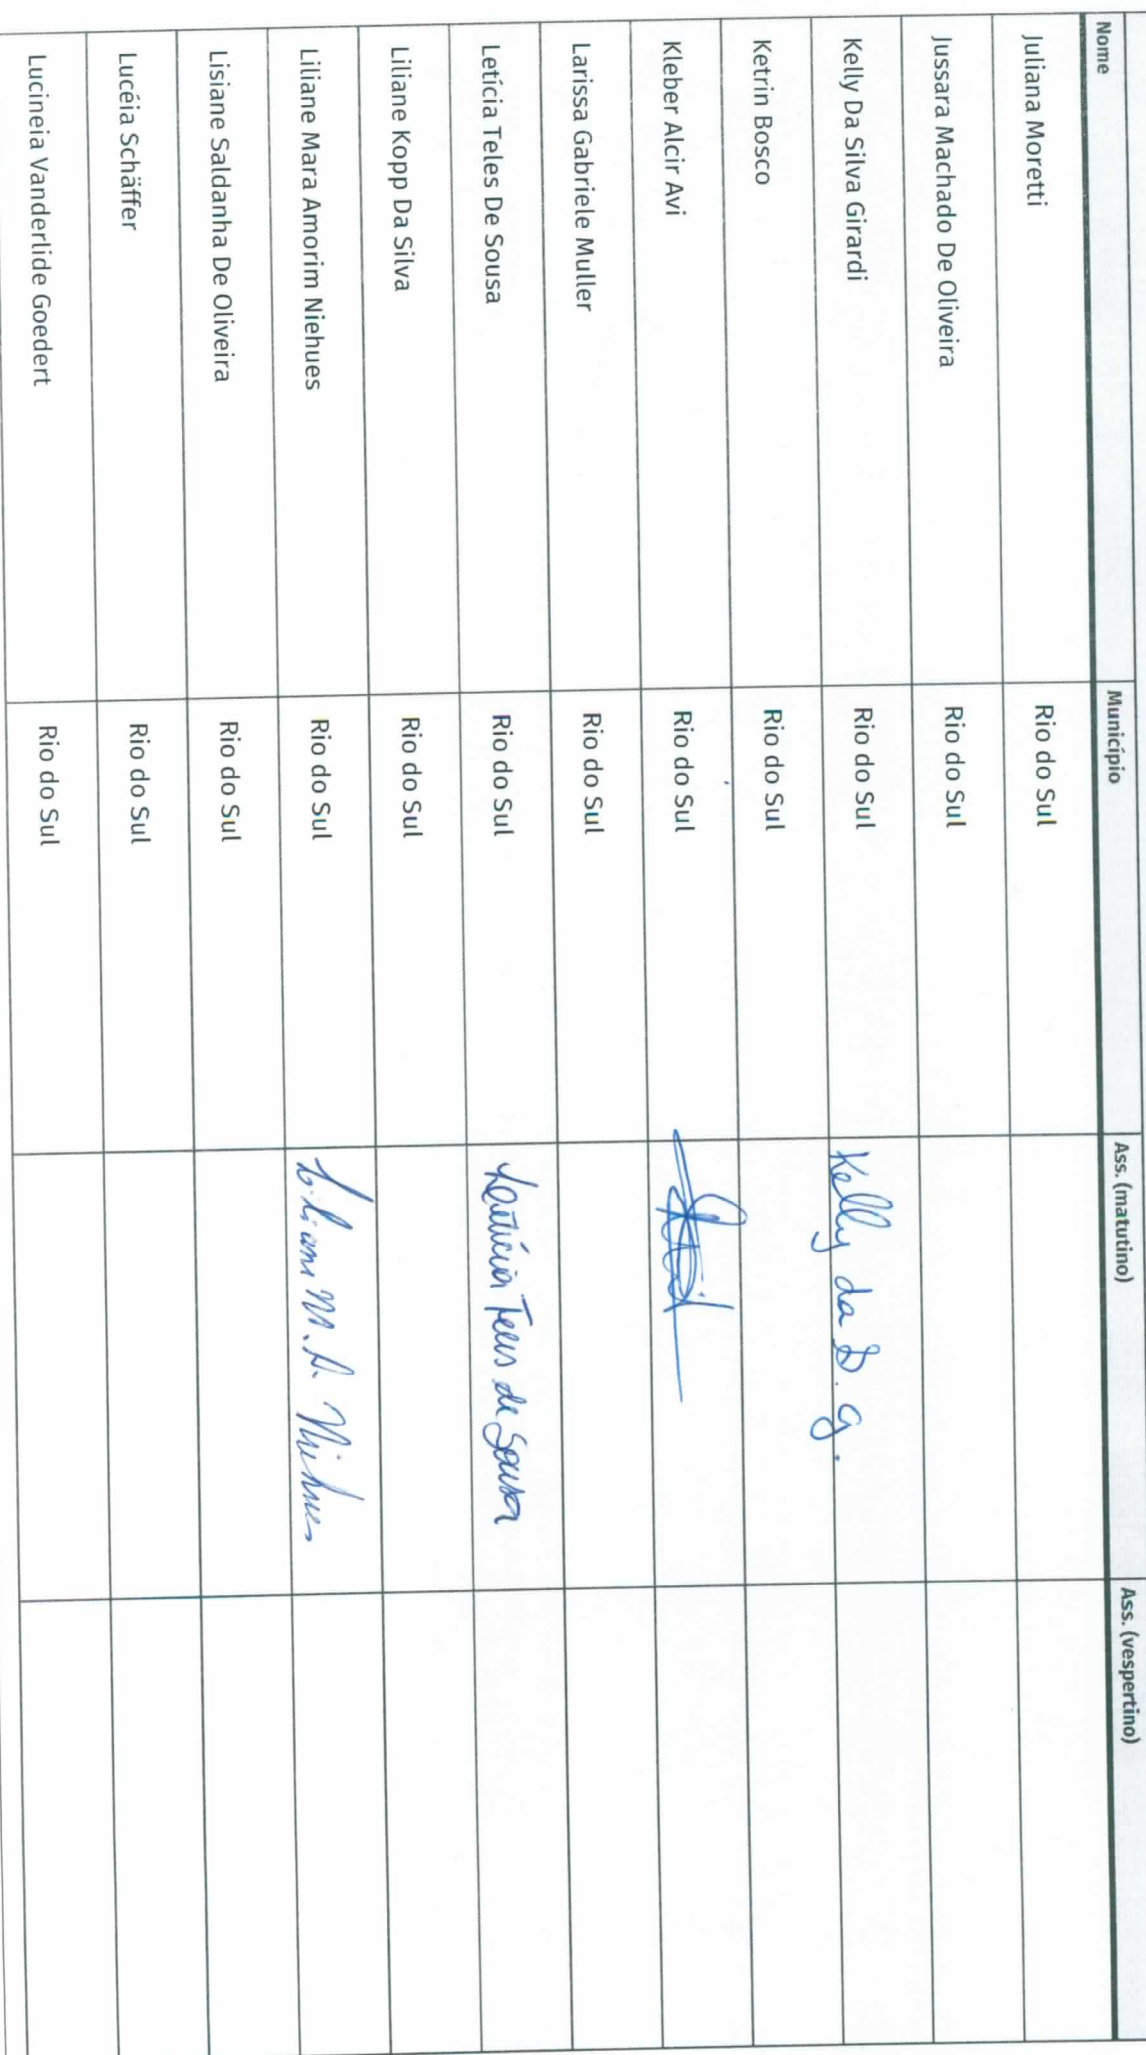 Nome Município Ass. (matutino) Ass. (vespertino)
Juliana Moretti Rio do Sul
Jussara Machado De Oliveira Rio do Sul
Kelly Da Silva Girardi Rio do Sul Kelly da S. G.
Ketrin Bosco Rio do Sul
Kleber Alcir Avi Rio do Sul
Larissa Gabriele Muller Rio do Sul
Letícia Teles De Sousa Rio do Sul Letícia Teles de Sousa
Liliane Kopp Da Silva Rio do Sul
Liliane Mara Amorim Niehues Rio do Sul Liliane M. A. Niehues
Lisiane Saldanha De Oliveira Rio do Sul
Lucéia Schäffer Rio do Sul
Lucineia Vanderlide Goedert Rio do Sul